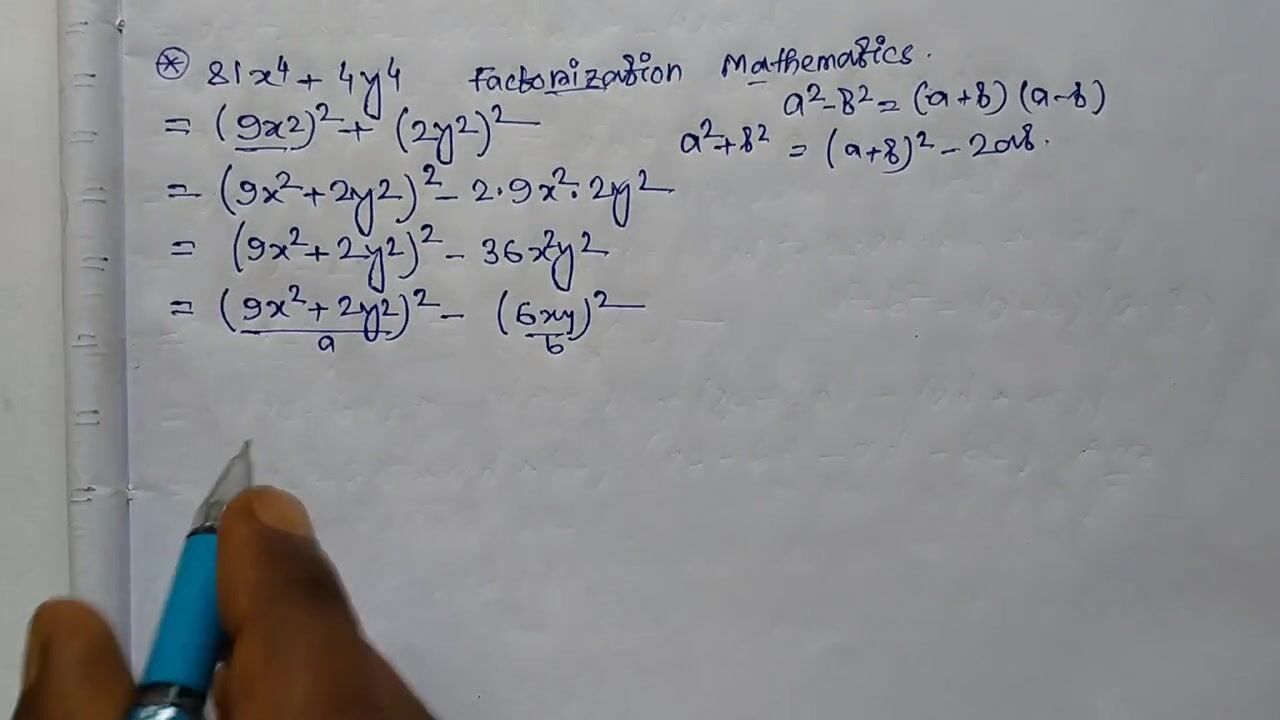 ⊛ 81x⁴ + 4y⁴ Factorization Mathematics.
a² - b² = (a+b) (a-b)
= (9x²)² + (2y²)²
a² + b² = (a+b)² - 2ab.
= (9x² + 2y²)² - 2·9x²·2y²
= (9x² + 2y²)² - 36x²y²
= (9x² + 2y²)² - (6xy)²
a b